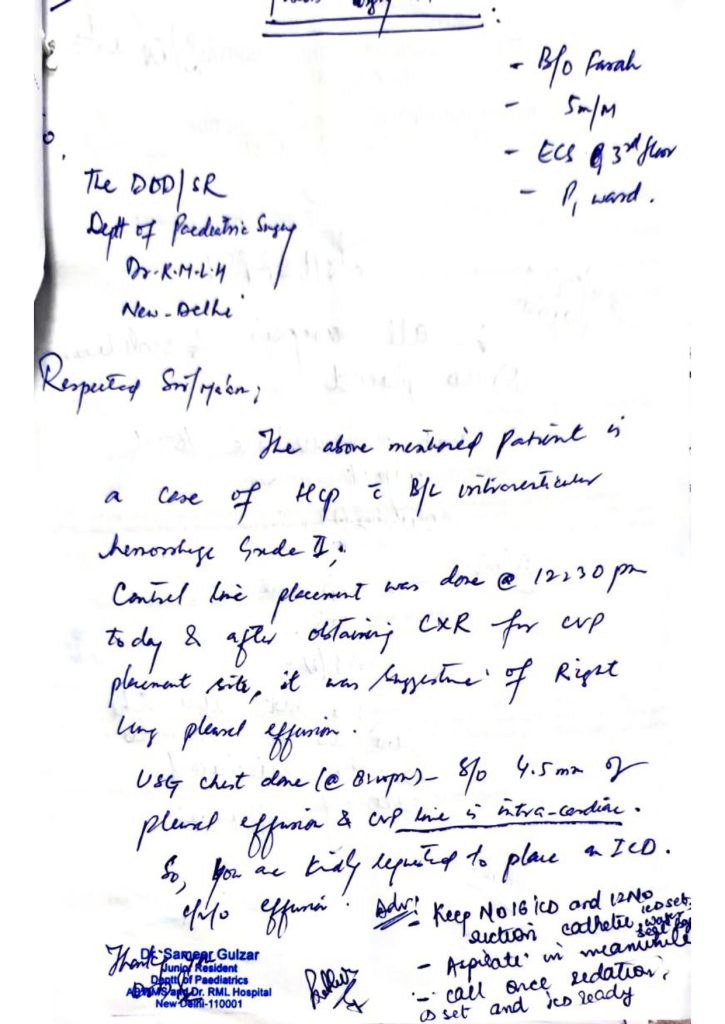 - B/O Farah
- 5m/M
- ECS @ 3rd floor
- P, ward.
The DOD/SR
Deptt of Paediatric Surgery
Dr. R.M.L.H
New-Delhi
Respected Sir/Ma'am,
The above mentioned patient is
a case of Hcp c̄ B/L intraventricular
hemorrhage Grade II,
Central line placement was done @ 12:30 pm
today & after obtaining CXR for CVP
placement site, it was suggestive of Right
lung pleural effusion.
USG chest done (@ pm) - S/O 4.5 mm of
pleural effusion & CVP line is intra-cardiac.
So, you are kindly requested to place an ICD.
i/v/o effusion.
Adv:
- Keep No 16 ICD and 12 No
suction catheter, ICD set, water seal bag
- Aspirate in meanwhile
- call once sedation,
ICD set and ICD ready
Thank you
Dr. Sameer Gulzar
Junior Resident
Deptt of Paediatrics
ABVIMS and Dr. RML Hospital
New Delhi-110001